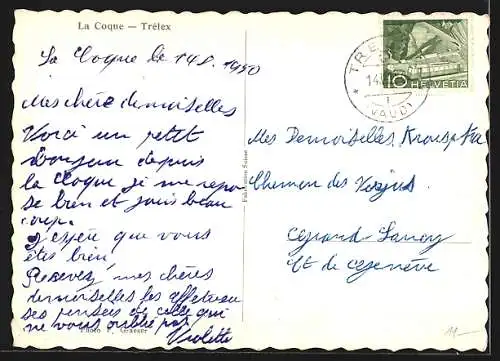 La Coque — Trélex
La Cloque le 14.8. 1950
Mes chère demoiselles
Voici un petit
bonjour depuis
la Cloque je me repo
se bien et jouis beau
coup.
J'espère que vous
êtes bien,
Recevez, mes chères
demoiselles les affectueu
ses pensées de celle qui
ne vous oublie pas
Violette
Photo P. Grasser
Fabrication Suisse
TRE
14.
(VAUD)
10 HELVETIA
Mes Demoiselles
Chemin des Verjus
Grand-Lancy
Ct de Genève